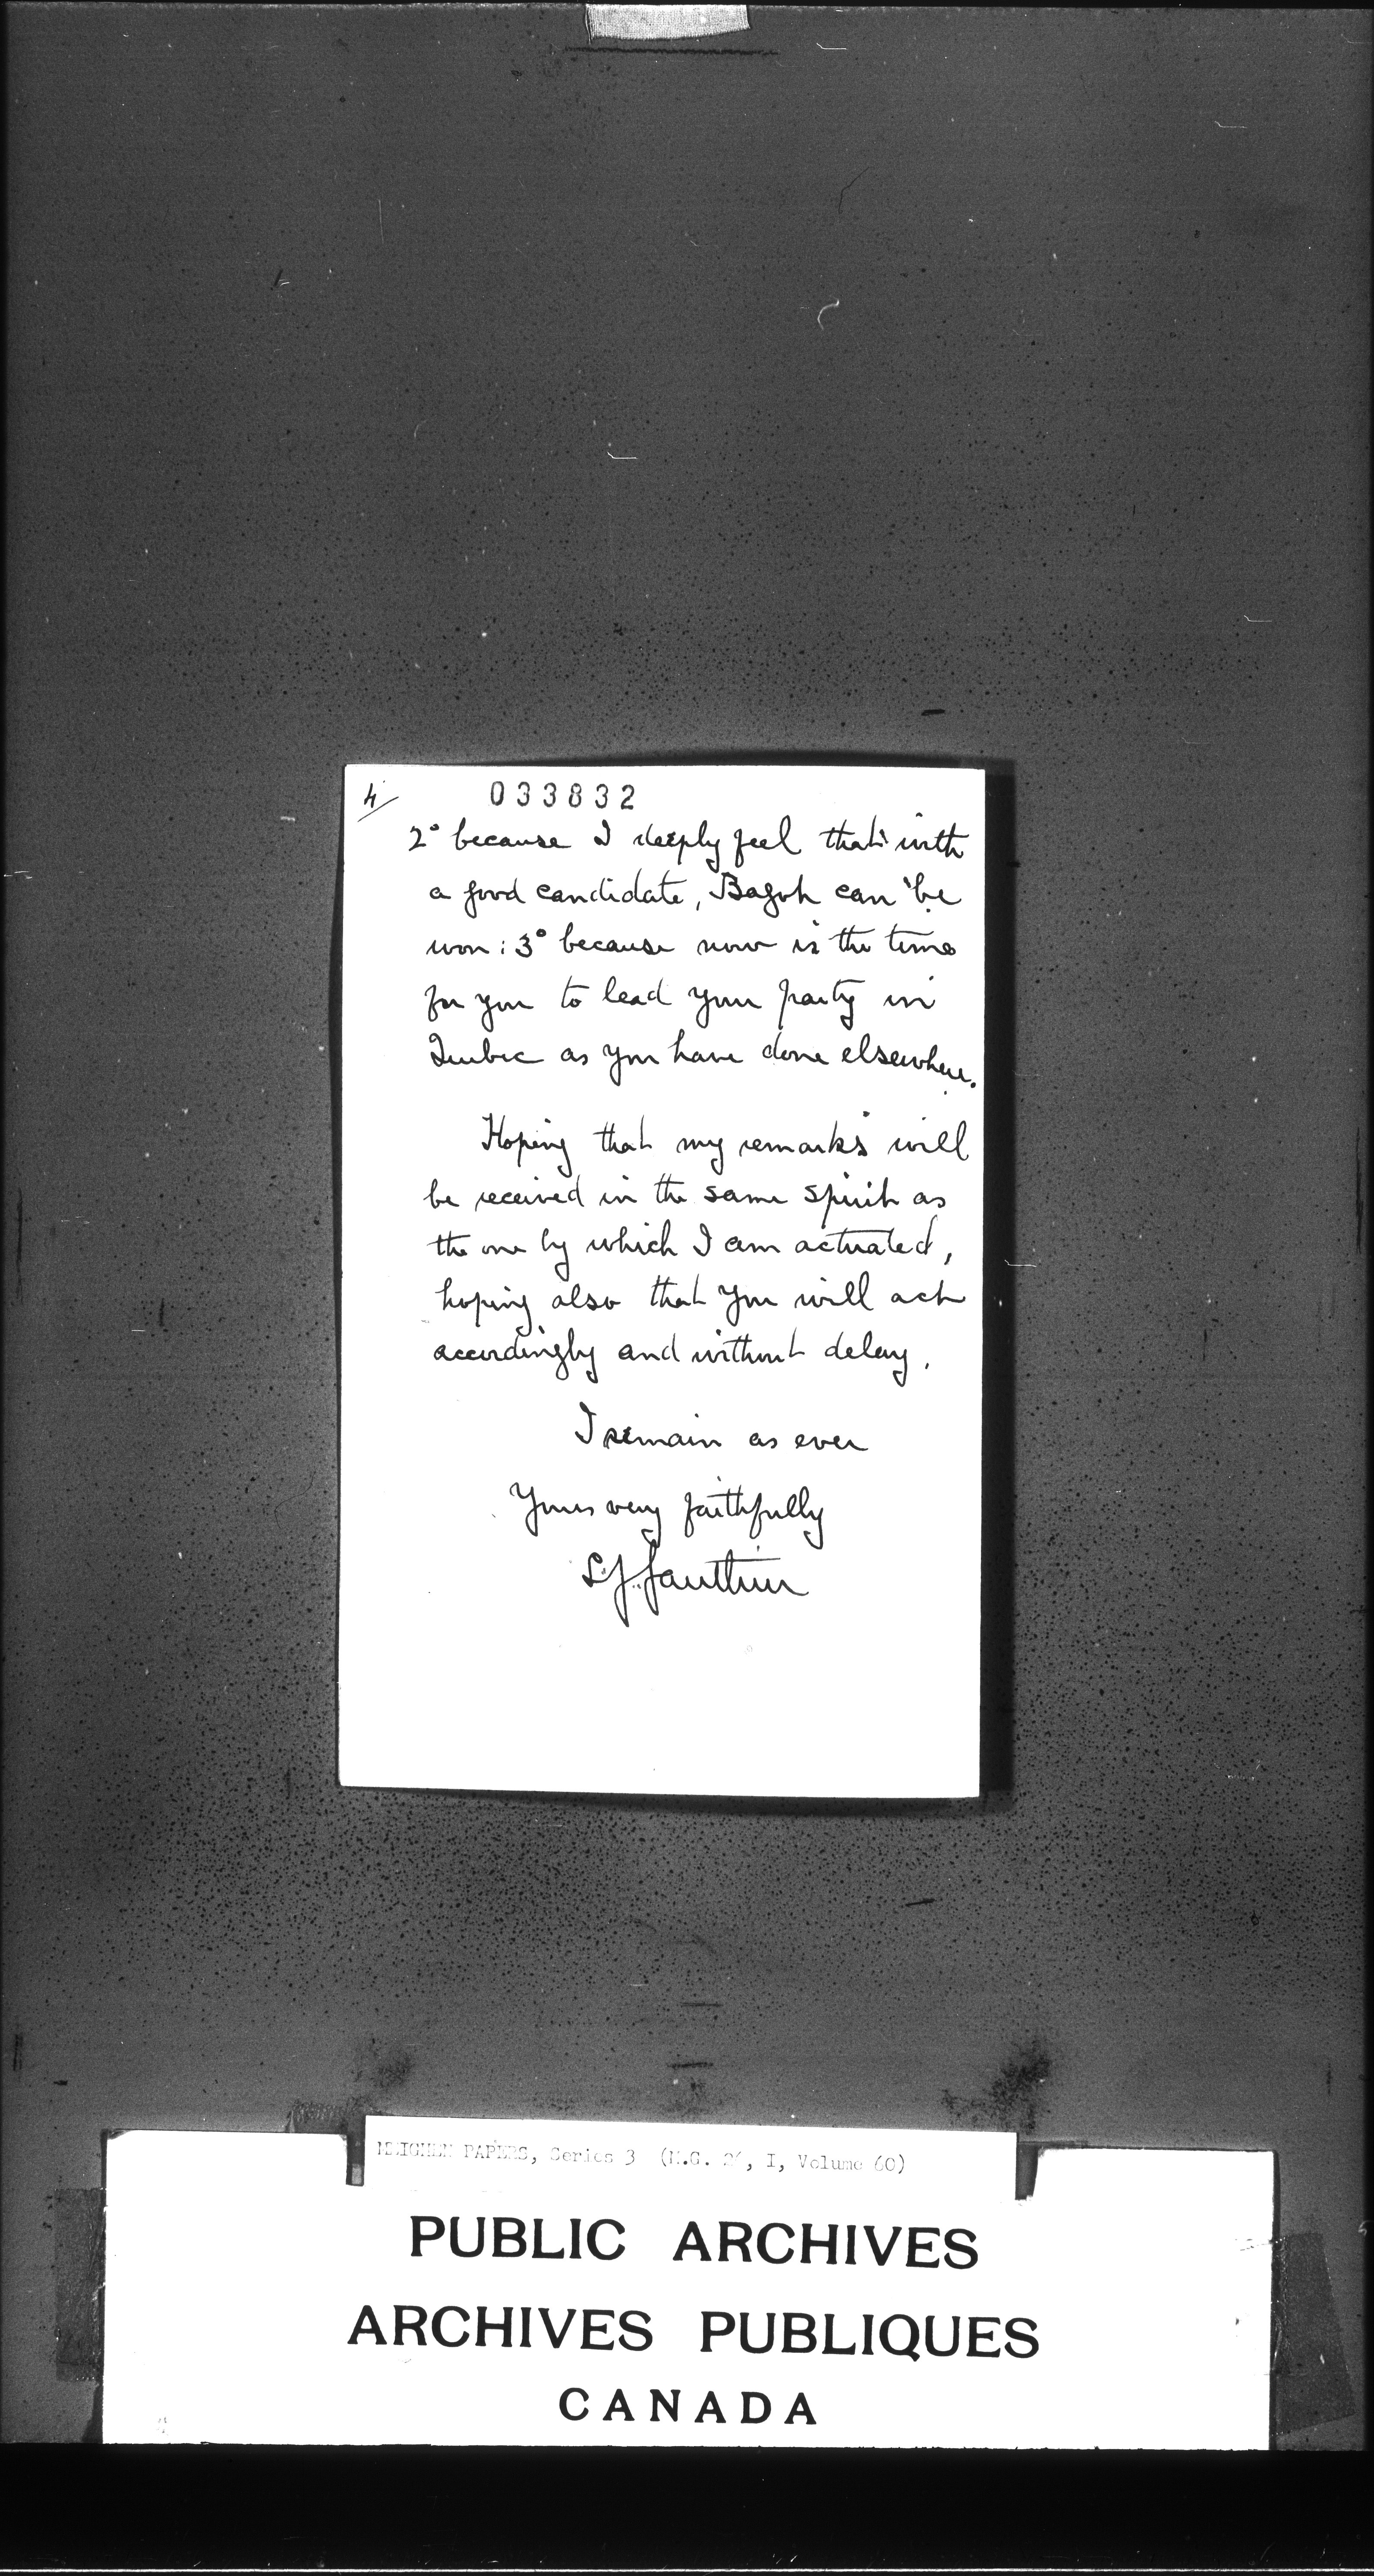 4/
033832
2° because I deeply feel that with
a good candidate, Bagot can be
won: 3° because now is the time
for you to lead your party in
Quebec as you have done elsewhere.
Hoping that my remarks will
be received in the same spirit as
the one by which I am actuated,
hoping also that you will act
accordingly and without delay.
I remain as ever
Yours very faithfully
L.J. Gauthier
MEIGHEN PAPERS, Series 3 (M.G. 26, I, Volume 60)
PUBLIC ARCHIVES
ARCHIVES PUBLIQUES
CANADA